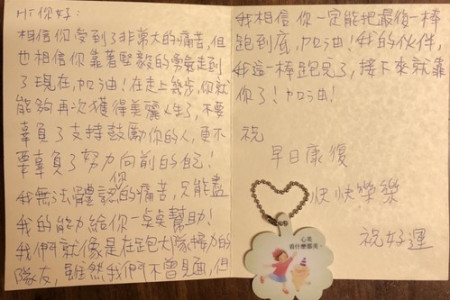 Hi 你好:
相信你受到了非常大的痛苦,但
也相信你靠著堅毅的勇氣走到
了現在,加油!在走上幾步,你就
能夠再次獲得美麗人生了,不要
辜負了支持鼓勵你的人,更不
要辜負了努力向前的自己!
我無法體認你的痛苦,只能盡
我的能力給你一點點幫助!
我們就像是在跑大隊接力的
隊友,雖然我們不曾見面,但
我相信你一定能把最後一棒
跑到底,加油!我的伙伴,
我這一棒跑完了,接下來就靠
你了!加油!
祝
早日康復
快快樂樂
祝好運